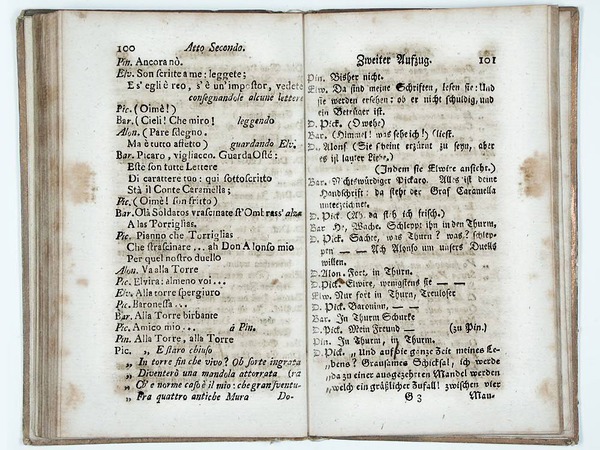 100 Atto Secondo.
Pin. Ancora nò.
Elv. Son scritte a me: leggete;
E s' egli è reo, s' è un' impostor, vedete
consegnandole alcune lettere
Pic. (Oimè!)
Bar. (Cieli! Che miro! leggendo
Alon. (Pare sdegno.
Ma è tutto affetto) guardando Elv.
Bar. Picaro, vigliacco. Guarda Osté:
Este son tutte Lettere
Di carattere tuo: qui sottoscritto
Stà il Conte Caramella;
Pic. (Oimè! son fritto)
Bar. Olà Soldatos vrascinate st'Ombrass'
A las Torriglias.
Pic. Pianno che Torriglias
Che strascinare ... ah Don Alonso mio
Per quel nostro duello
Alon. Va alla Torre
Pic. Elvira: almeno voi ...
Elv. Alla torre spergiuro
Pic. Baronessa ...
Bar. Alla Torre birbante
Pic. Amico mio ... à Pin.
Pin. Alla Torre, alla Torre
Pic. „ E staro chiuso
„ In torre fin che vivo? Oh sorte ingrata
„ Diventerò una mandola attorrata (ra
„ O! e norme caso è il mio: che gran sventu-
„ Fra quattro antiche Mura Do-
Zweiter Aufzug. 101
Pin. Bisher nicht.
Elw. Da sind meine Schriften, lesen sie: Und
sie werden ersehen: ob er nicht schuldig, und
ein Betrüger ist.
D. Pick. (O wehe)
Bar. (Himmel! was sehe ich!) (liest.
D. Alons (Sie scheint erzürnt zu seyn, aber
es ist lauter Liebe.)
(Indem sie Elwire ansieht.)
Bar. Nichtswürdiger Pickaro. Alles ist deine
Handschrift: da steht der Graf Caramella
unterzeichnet.
D. Pick. (Ah da steh ich frisch.)
Bar He, Wache. Schleppt ihn in den Thurn,
D. Pick. Sachte, was Thurn? was? schlep-
pen — — Ach Alonso um unsers Duells
willen.
D. Alon. Fort, in Thurn.
D. Pick. Elwire, wenigstens sie — —
Elw. Nur fort in Thurn, Treuloser
D. Pick. Baroninn, — —
Bar. In Thurm Schurke
D. Pick. Mein Freund — (zu Pin.)
Pin. In Thurn, in Thurn.
D. Pick. „ Und auf die ganze Zeit meines Le-
„bens? Grausames Schicksal, ich werde
„da zu einer ausgezehrten Mandel werden
„welch ein gräßlicher Zufall! zwischen vier
G 3 Mau-